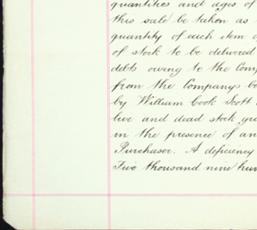 quantities and ages of
this sale be taken as
quantity of each item o
of stock to be delivered
debts owing to the Comp
from the Companys bo
by William Cook Scott
live and dead stock gu
in the presence of an
Purchaser. A deficiency
Two thousand nine hun